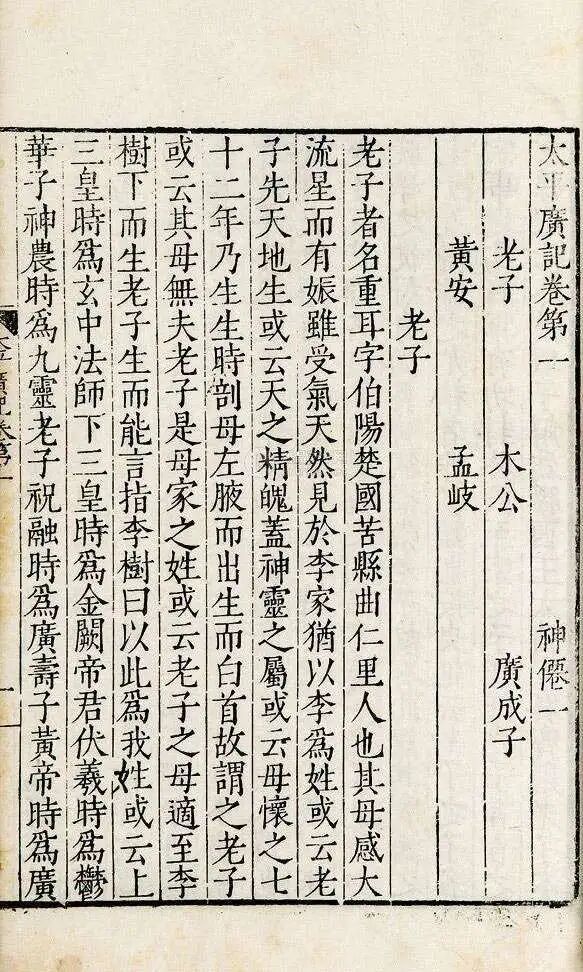 太平廣記卷第一 神僊一
老子 木公 廣成子
黃安 孟岐
老子
老子者名重耳字伯陽楚國苦縣曲仁里人也其母感大
流星而有娠雖受氣天然見於李家猶以李爲姓或云老
子先天地生或云天之精魄蓋神靈之屬或云母懷之七
十二年乃生生時剖母左腋而出生而白首故謂之老子
或云其母無夫老子是母家之姓或云老子之母適至李
樹下而生老子生而能言指李樹曰以此爲我姓或云上
三皇時爲玄中法師下三皇時爲金闕帝君伏羲時爲鬱
華子神農時爲九靈老子祝融時爲廣壽子黃帝時爲廣
太平廣記卷第一
一